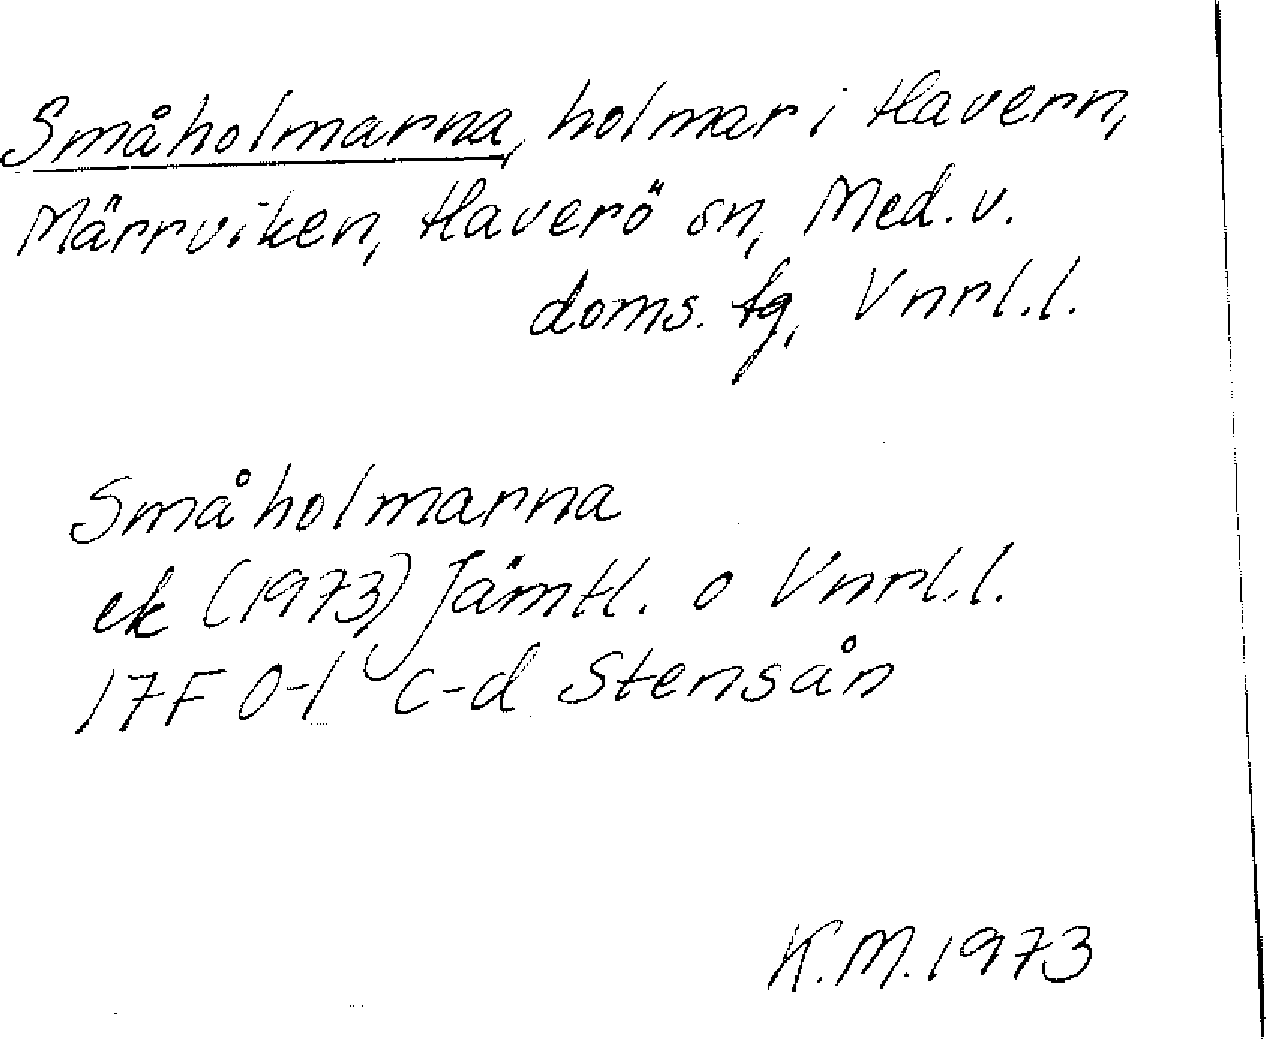 Småholmarna, holmar i Havern,
Märrviken, Haverö sn, Med. v.
doms. tg, Vnrl.l.
Småholmarna
ek (1973) Jämtl. o Vnrl.l.
17F 0-1 c-d Stensån
K.M. 1973